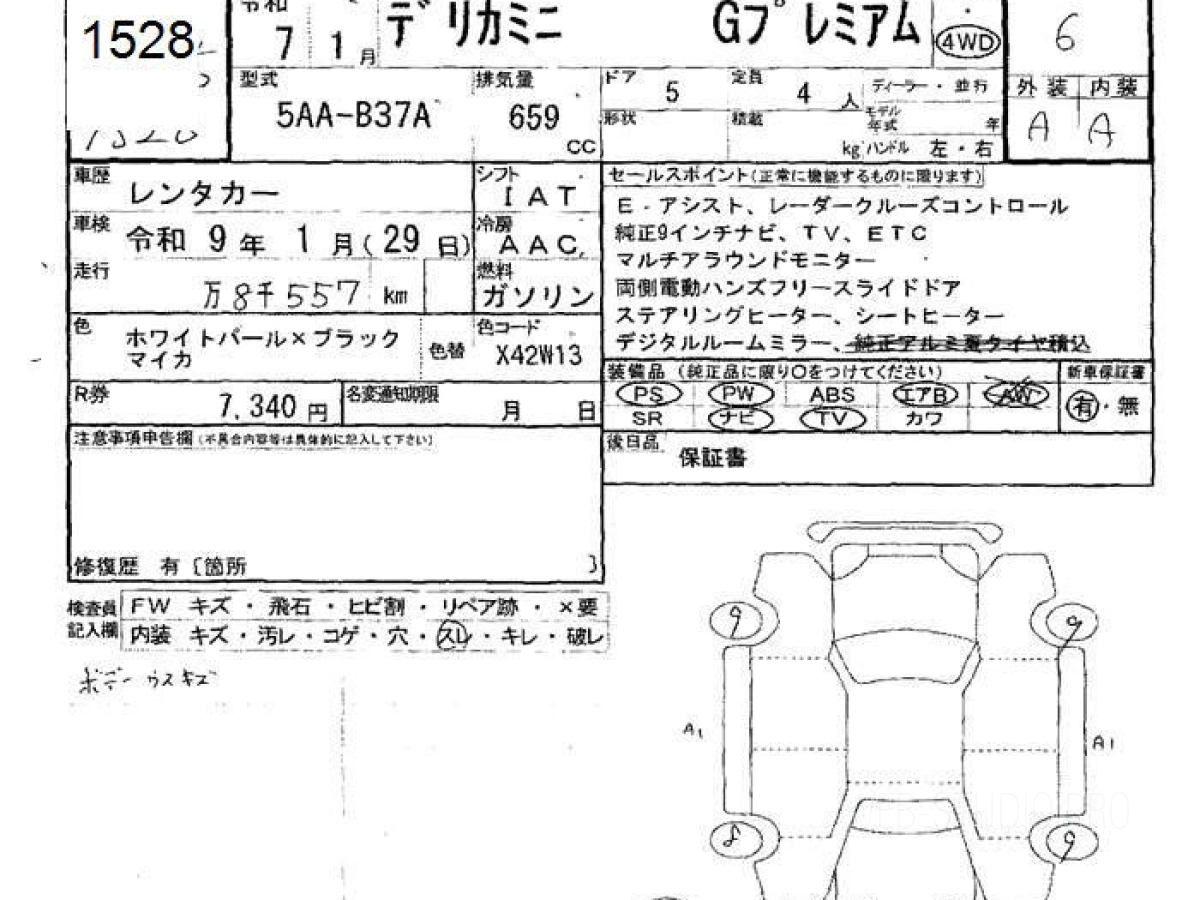 1528
令和
7 1月
デリカミニ Gプレミアム 4WD
6
型式
5AA-B37A
排気量
659
CC
ドア
5
定員
4 人
ディーラー・並行
形状
積載
kg
モデル年式
年
ハンドル 左・右
外装 内装
A A
車歴
レンタカー
シフト
IAT
車検
令和 9年 1月(29日)
冷房
AAC
走行
万8千557 km
燃料
ガソリン
色
ホワイトパール×ブラック
マイカ
色替
色コード
X42W13
R券
7,340円
名変通知期限
月 日
注意事項申告欄(不具合内容等は具体的に記入して下さい)
修復歴 有〔箇所 〕
セールスポイント(正常に機能するものに限ります)
E・アシスト、レーダークルーズコントロール
純正9インチナビ、TV、ETC
マルチアラウンドモニター
両側電動ハンズフリースライドドア
ステアリングヒーター、シートヒーター
デジタルルームミラー、純正アルミ夏タイヤ積込
装備品(純正品に限り○をつけてください)
新車保証書
PS PW ABS エアB AW
有・無
SR ナビ TV カワ
後日品
保証書
検査員
記入欄
FW キズ・飛石・ヒビ割・リペア跡・×要
内装 キズ・汚レ・コゲ・穴・スレ・キレ・破レ
ボデー ウスキズ
9 9
A1 A1
8 9